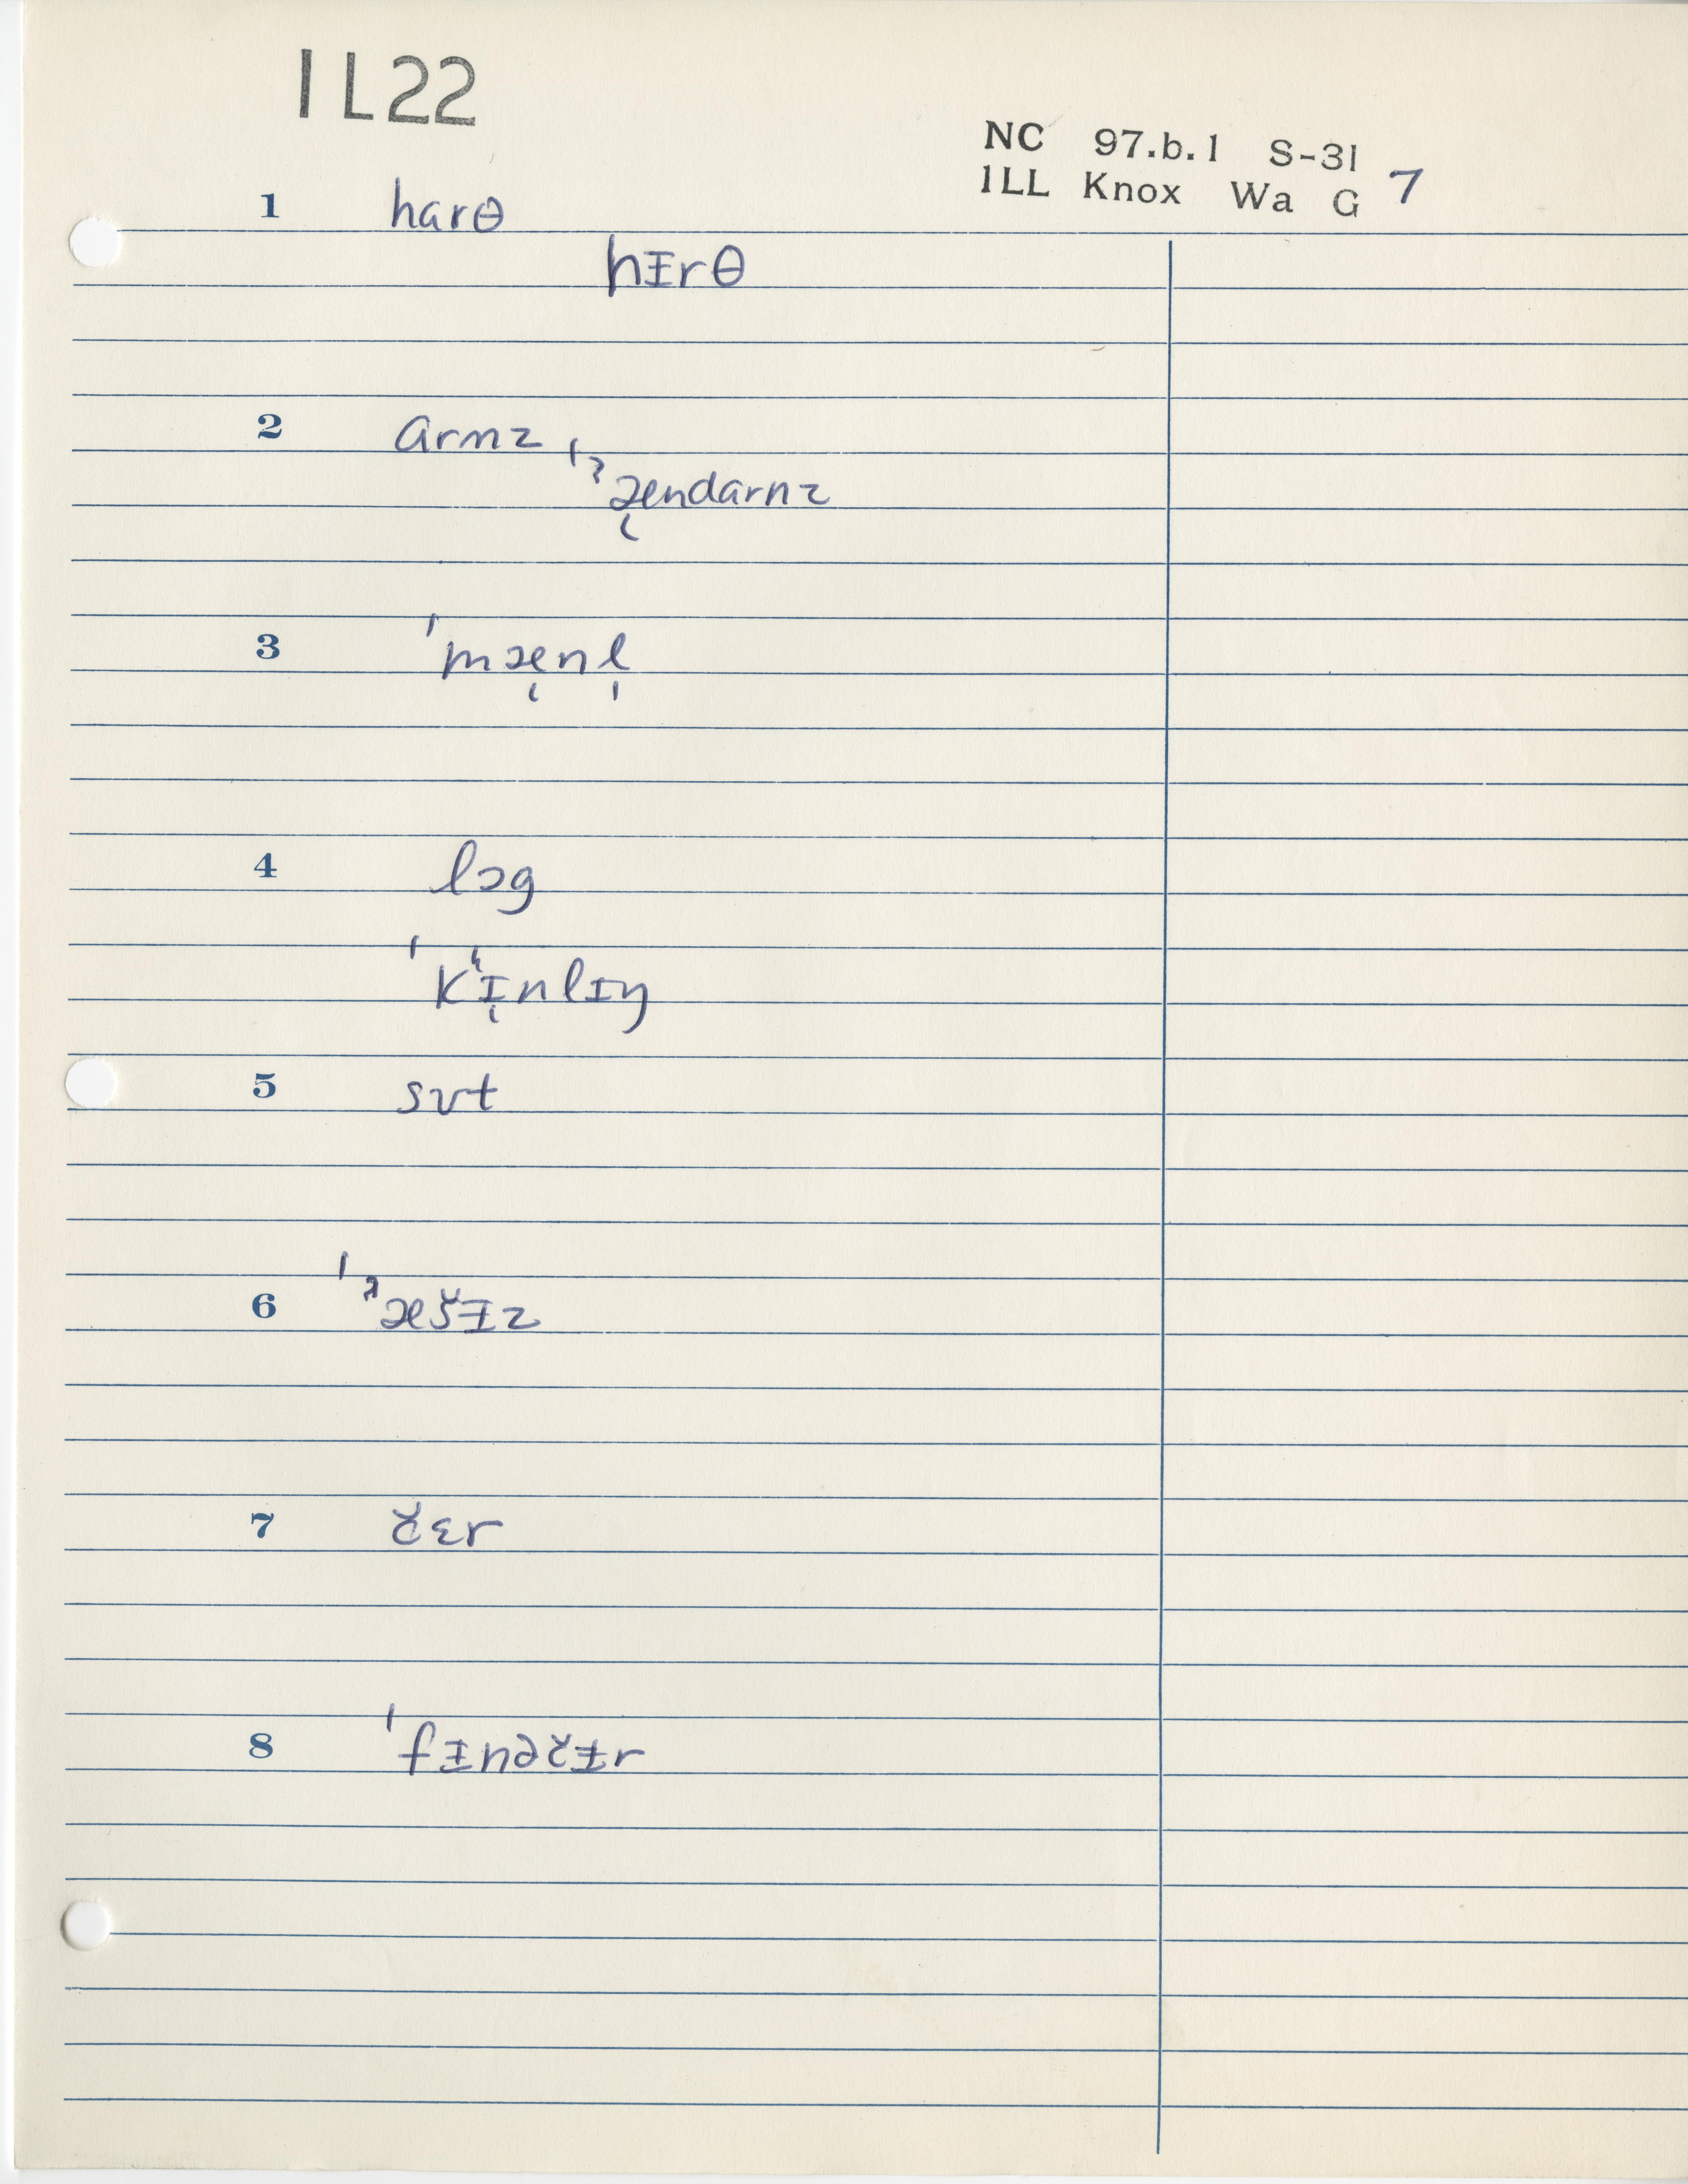 1L22
NC 97.b.1 S-31
1LL Knox Wa G 7
1 harθ
hɪrθ
2 ɑrnz
ˈˀæ̨ndɑrnz
3 ˈmæ̨nl̩
4 lɔg
ˈkʰɪ̨nlɪŋ
5 sʊt
6 ˈˀæšɪz
7 čɛr
8 ˈfɪnəčɪr